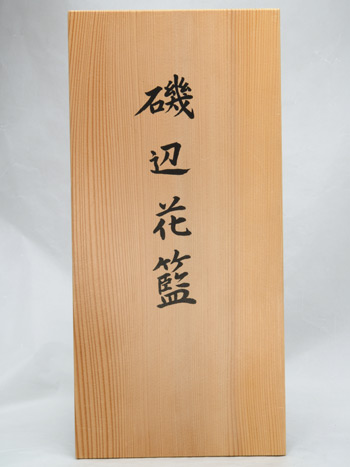 磯辺花籃